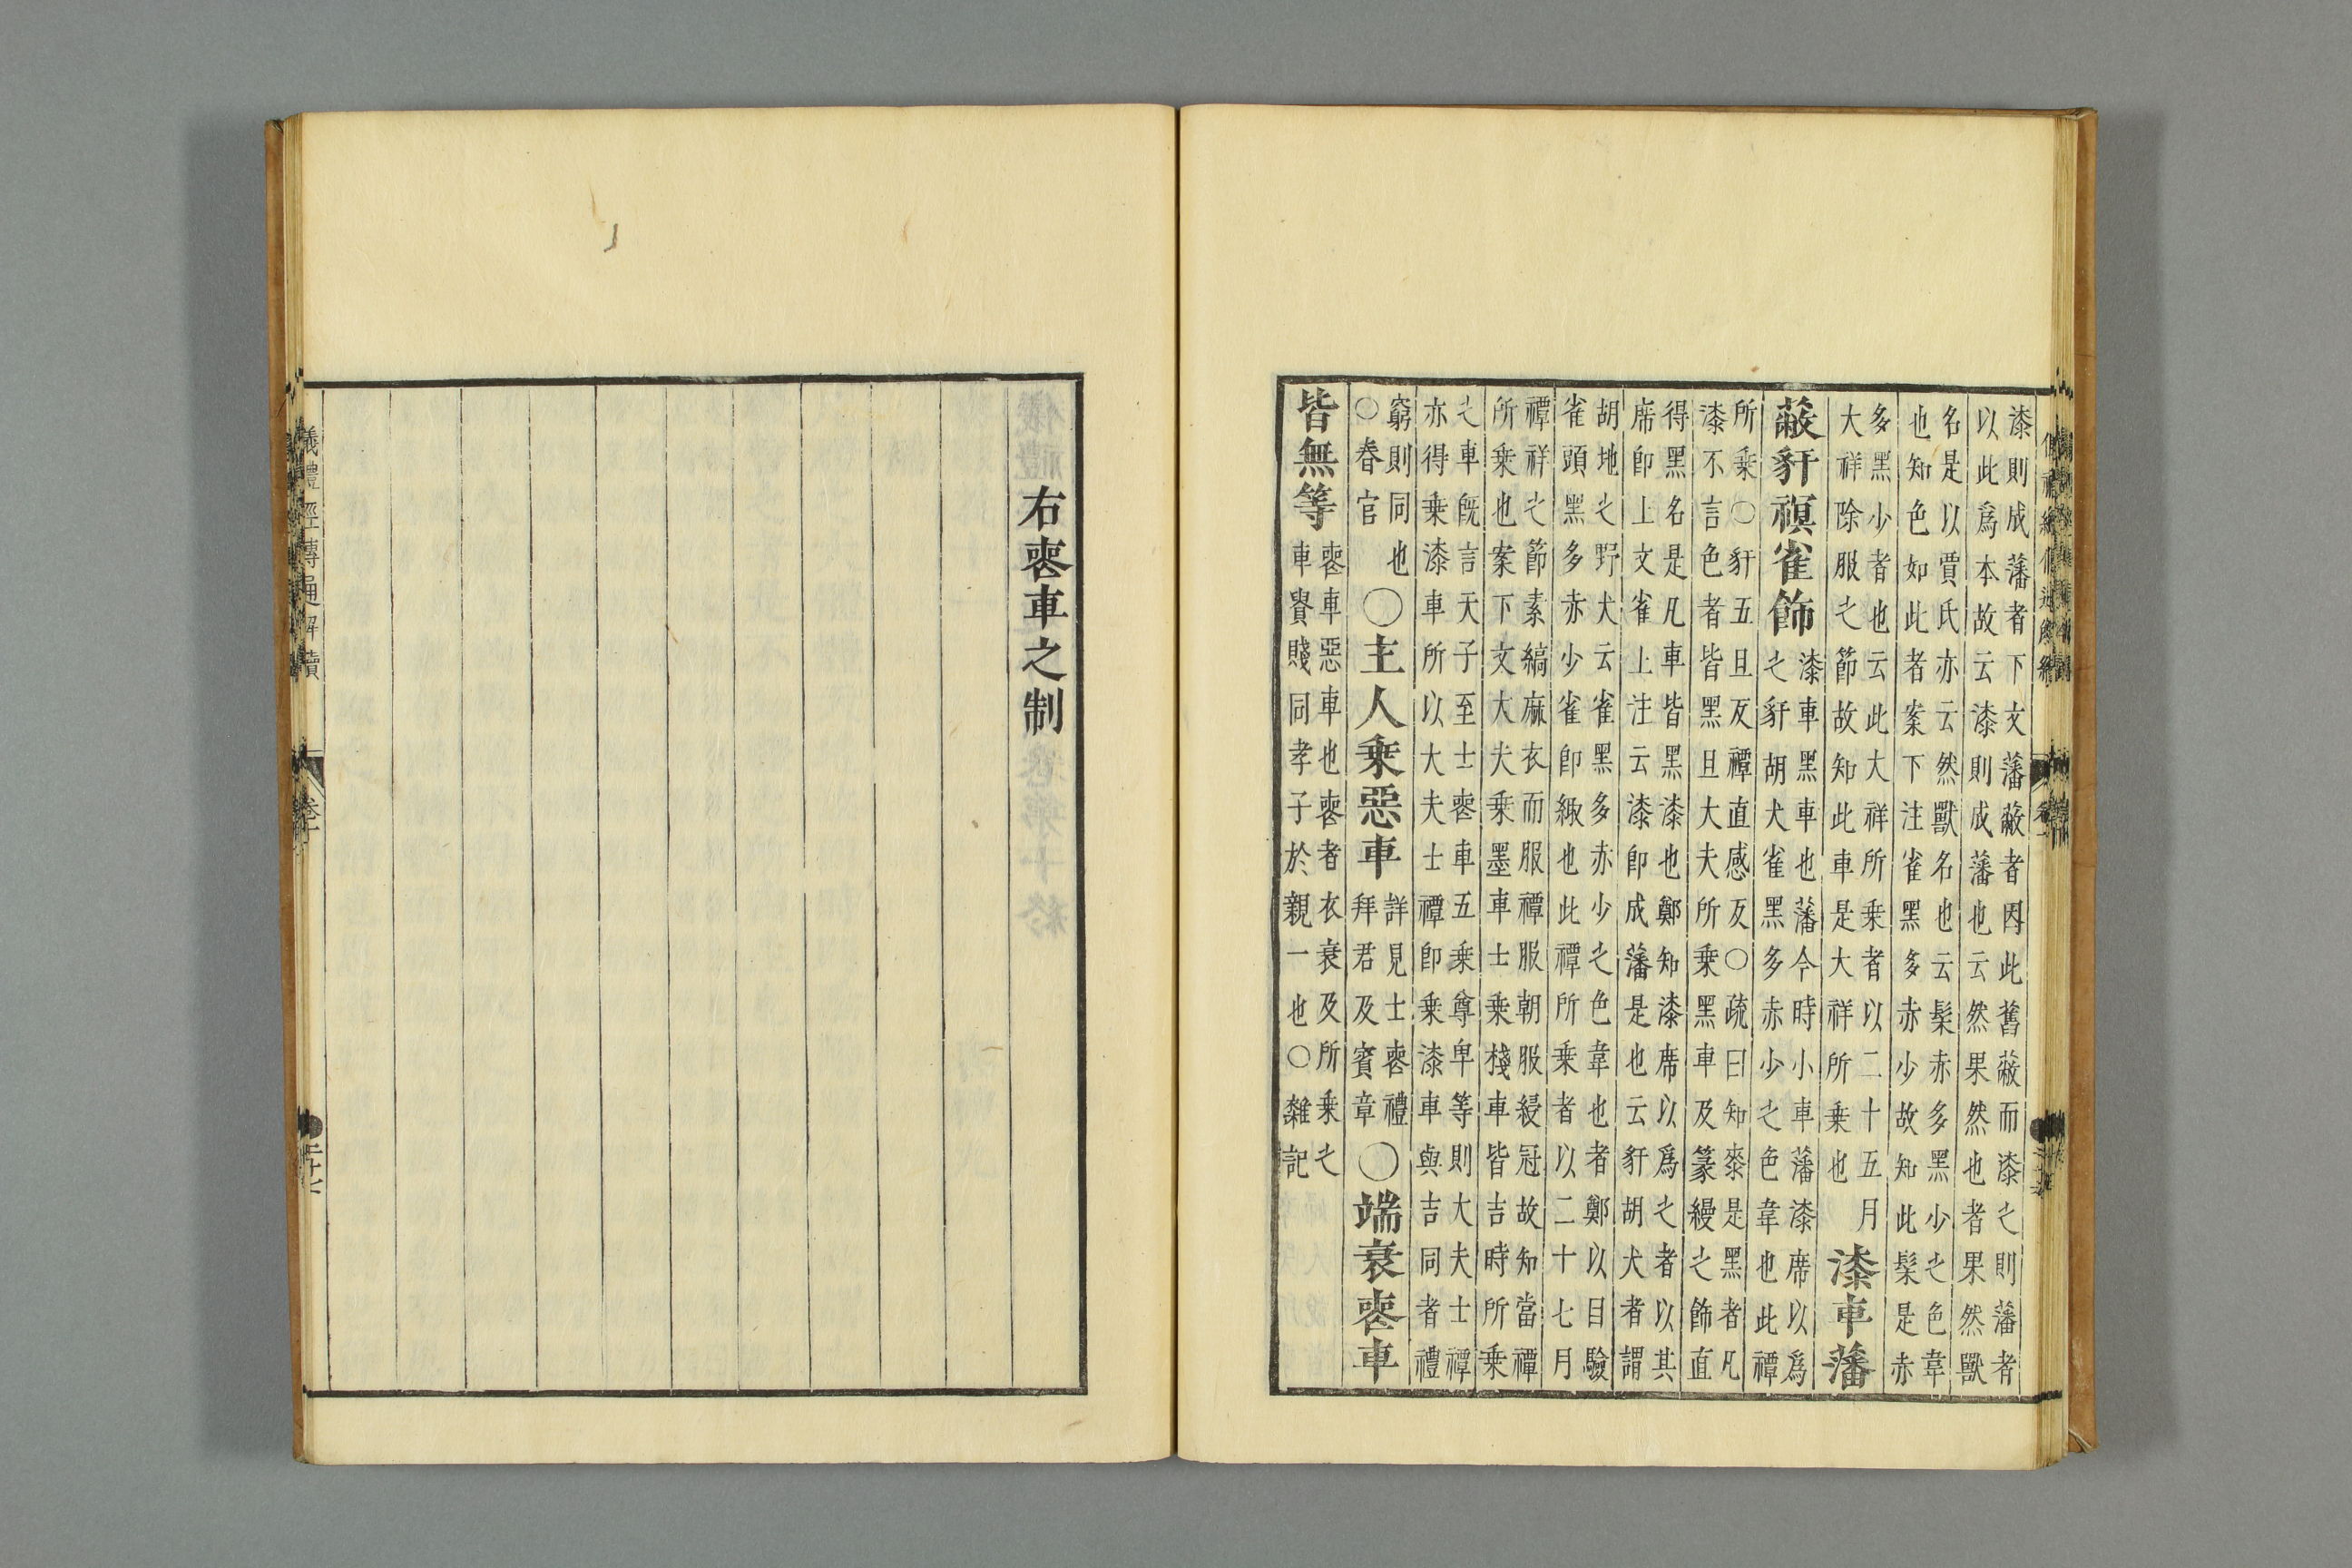 漆則成藩者下文藩蔽者因此舊蔽而漆之則藩者
以此爲本故云漆則成藩也云然果然也者果然獸
名是以賈氏亦云然獸名也云髹赤多黑少之色韋
也知色如此者案下注雀黑多赤少故知此髹是赤
多黑少者也云此大祥所乗者以二十五月
大祥除服之節故知此車是大祥所乗也
漆車藩
蔽豻𧜀雀飾
漆車黑車也藩今時小車藩漆席以爲
之豻胡犬雀黑多赤少之色韋也此禫
所乗○豻五旦反禫直感反○疏曰知桼是黑者凡
漆不言色者皆黑且大夫所乗黑車及篆縵之飾直
得黑名是凡車皆黑漆也鄭知漆席以爲之者以其
席卽上文雀上注云漆卽成藩是也云豻胡犬者謂
胡地之野犬云雀黑多赤少之色韋也者鄭以目驗
雀頭黑多赤少雀卽緅也此禫所乗者以二十七月
禫祥之節素縞麻衣而服禫服朝服綅冠故知當禫
所乗也案下文大夫乗墨車士乗棧車皆吉時所乗
之車旣言天子至士䘮車五乗尊卑等則大夫士禫
亦得乗漆車所以大夫士禫卽乗漆車與吉同者禮
窮則同也
○春官
○主人乗惡車
詳見士䘮禮
拜君及賓章
○端衰䘮車
皆無等
䘮車惡車也䘮者衣衰及所乗之
車貴賤同孝子於親一也○雜記
右䘮車之制
儀禮經傳通解續